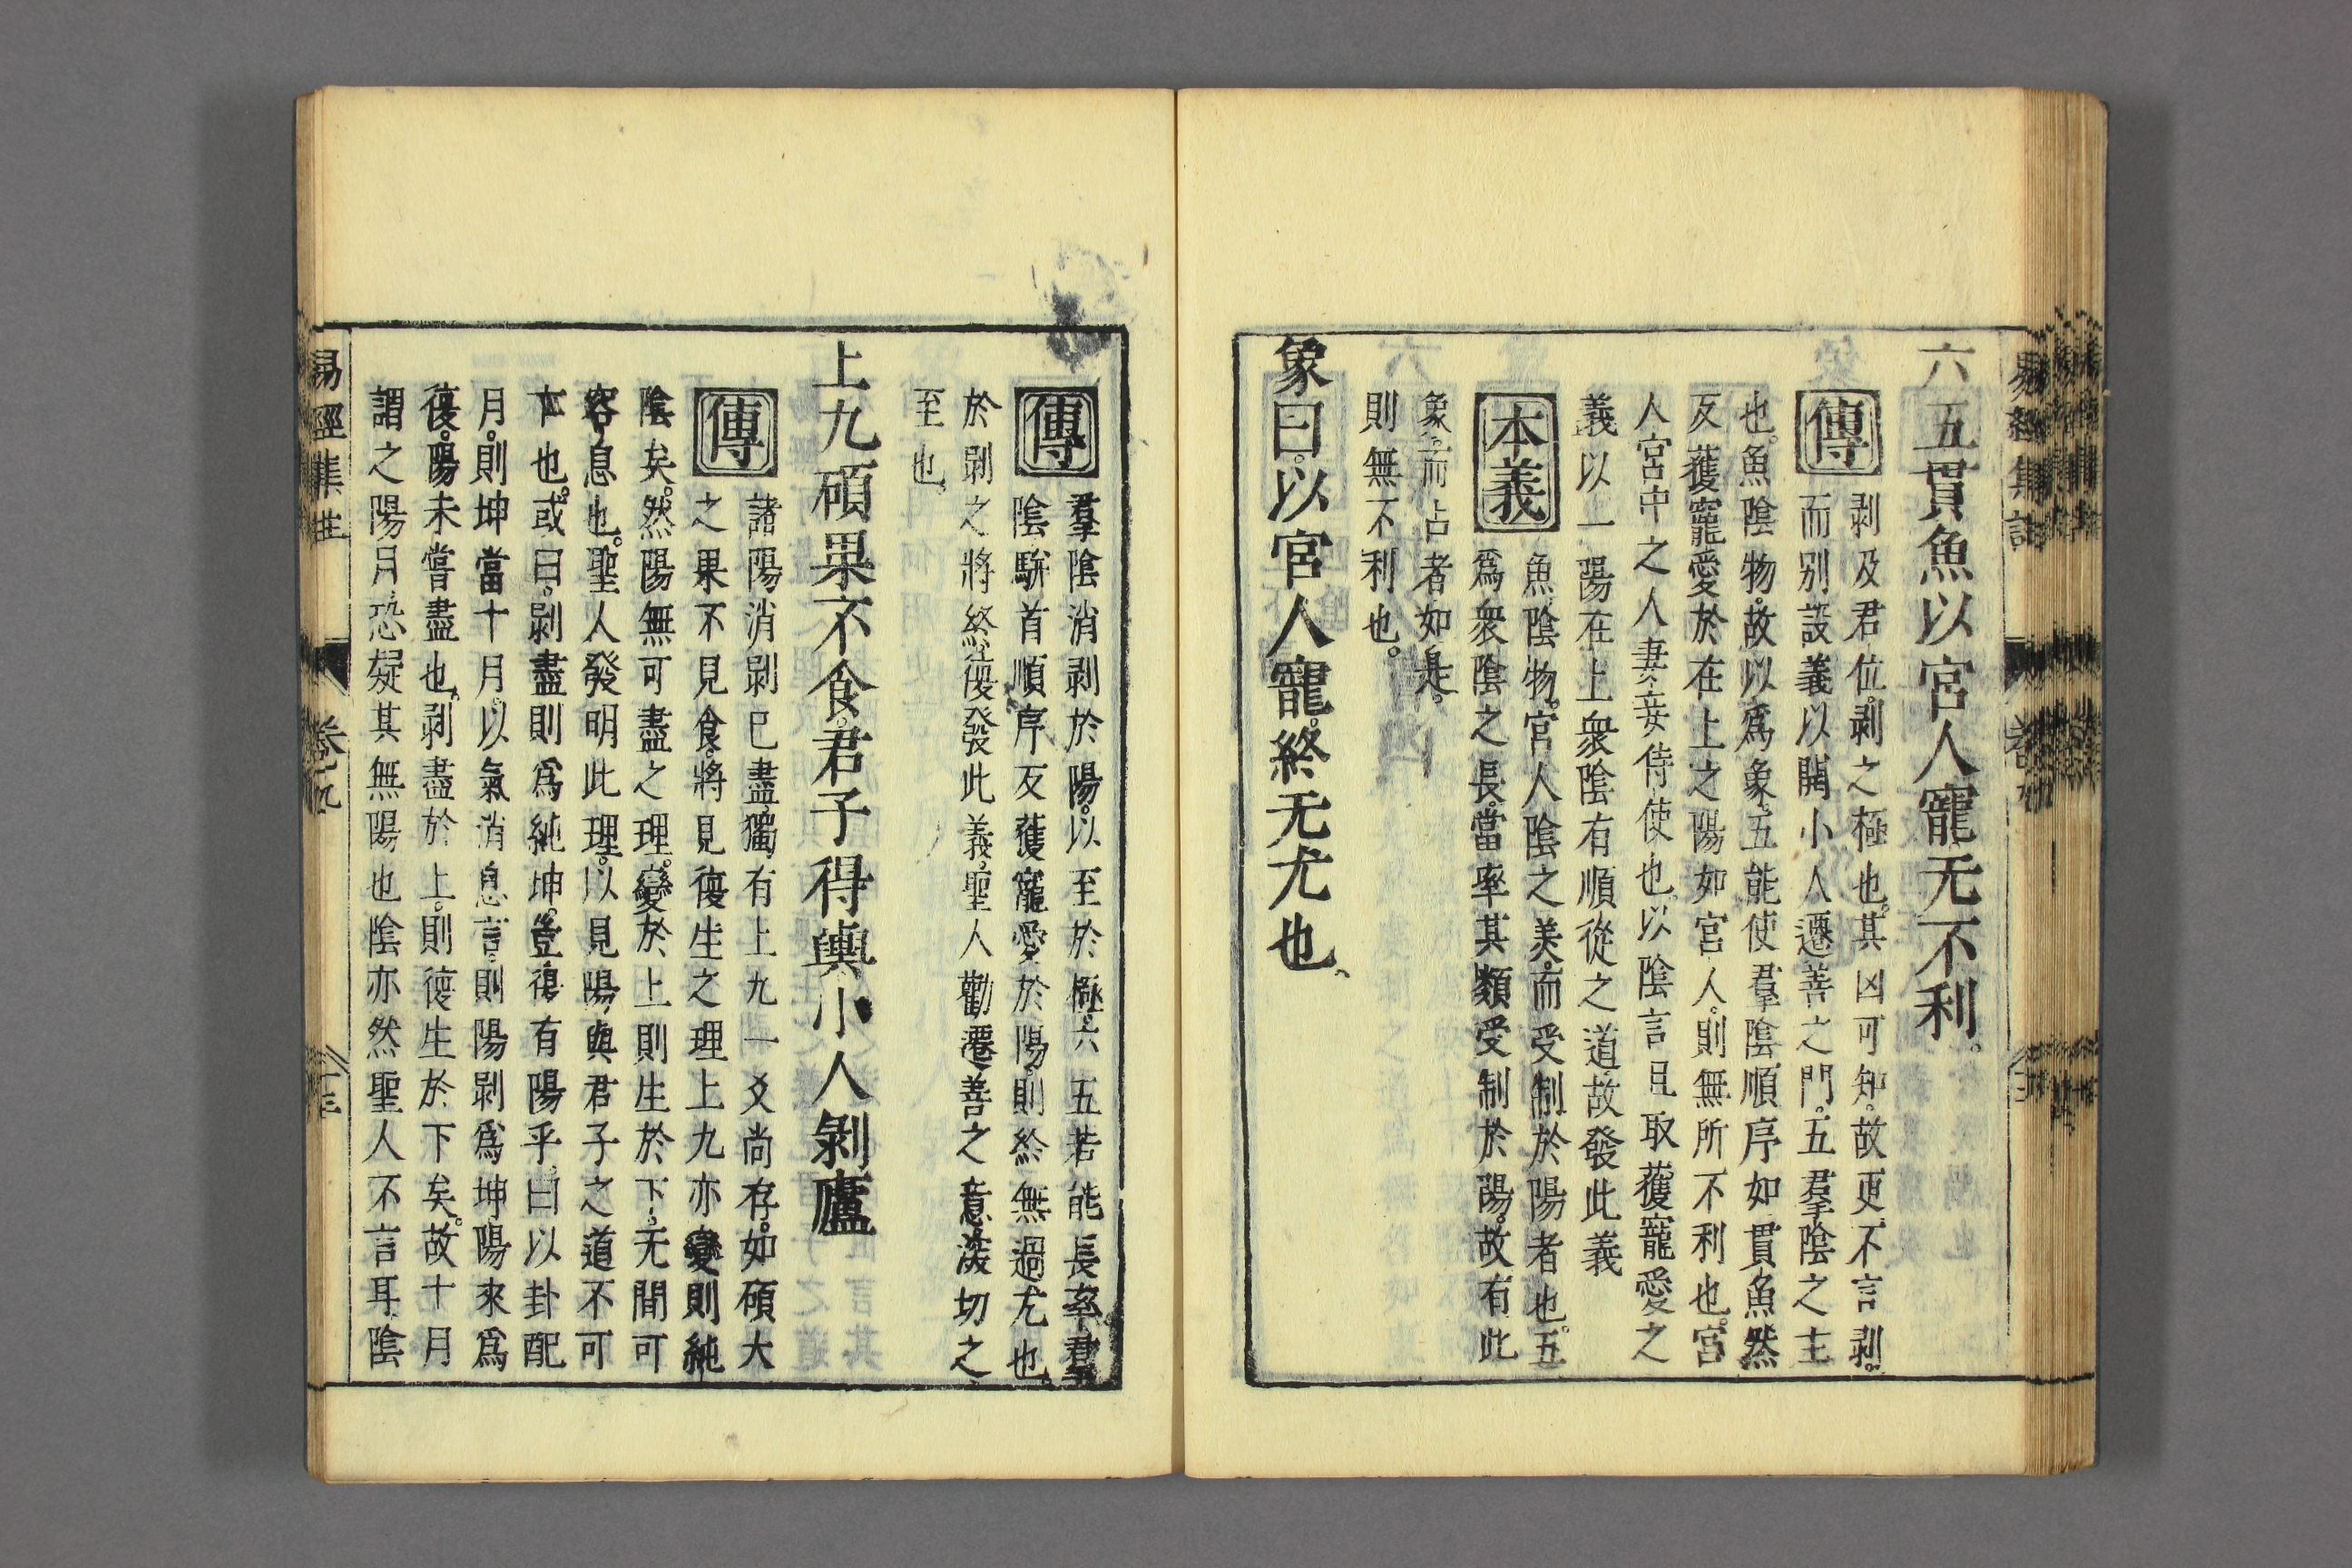 六五貫魚以宮人寵无不利。
傳 剥及君位。剥之極也。其凶可知。故更不言剥。
而别設義以開小人遷善之門。五羣陰之主
也。魚陰物。故以爲象。五能使羣陰順序如貫魚然
反獲寵愛於在上之陽如宮人。則無所不利也。宮
人宮中之人妻妾侍使也。以陰言且取獲寵愛之
義以一陽在上衆陰有順從之道。故發此義
本義 魚陰物。宮人陰之美。而受制於陽者也。五
爲衆陰之長。當率其類受制於陽。故有此
象。而占者如是。
則無不利也。
象曰。以宮人寵。終无尤也。
傳 羣陰消剥於陽。以至於極。六五若能長率羣
陰駢首順序反獲寵愛於陽。則終無過尤也。
於剥之將終。復發此義。聖人勸遷善之意。深切之
至也。
上九碩果不食。君子得輿小人剝廬
傳 諸陽消剥已盡。獨有上九一爻尚存。如碩大
之果不見食。將見復生之理上九亦變則純
陰矣。然陽無可盡之理。變於上則生於下。无間可
容息也。聖人發明此理。以見陽與君子之道不可
亡也。或曰。剥盡則爲純坤。豈復有陽乎。曰以卦配
月。則坤當十月。以氣消息言。則陽剥爲坤陽來爲
復。陽未嘗盡也。剥盡於上。則復生於下矣。故十月
謂之陽月。恐疑其無陽也陰亦然聖人不言耳。陰
易經集註 卷九 二十三